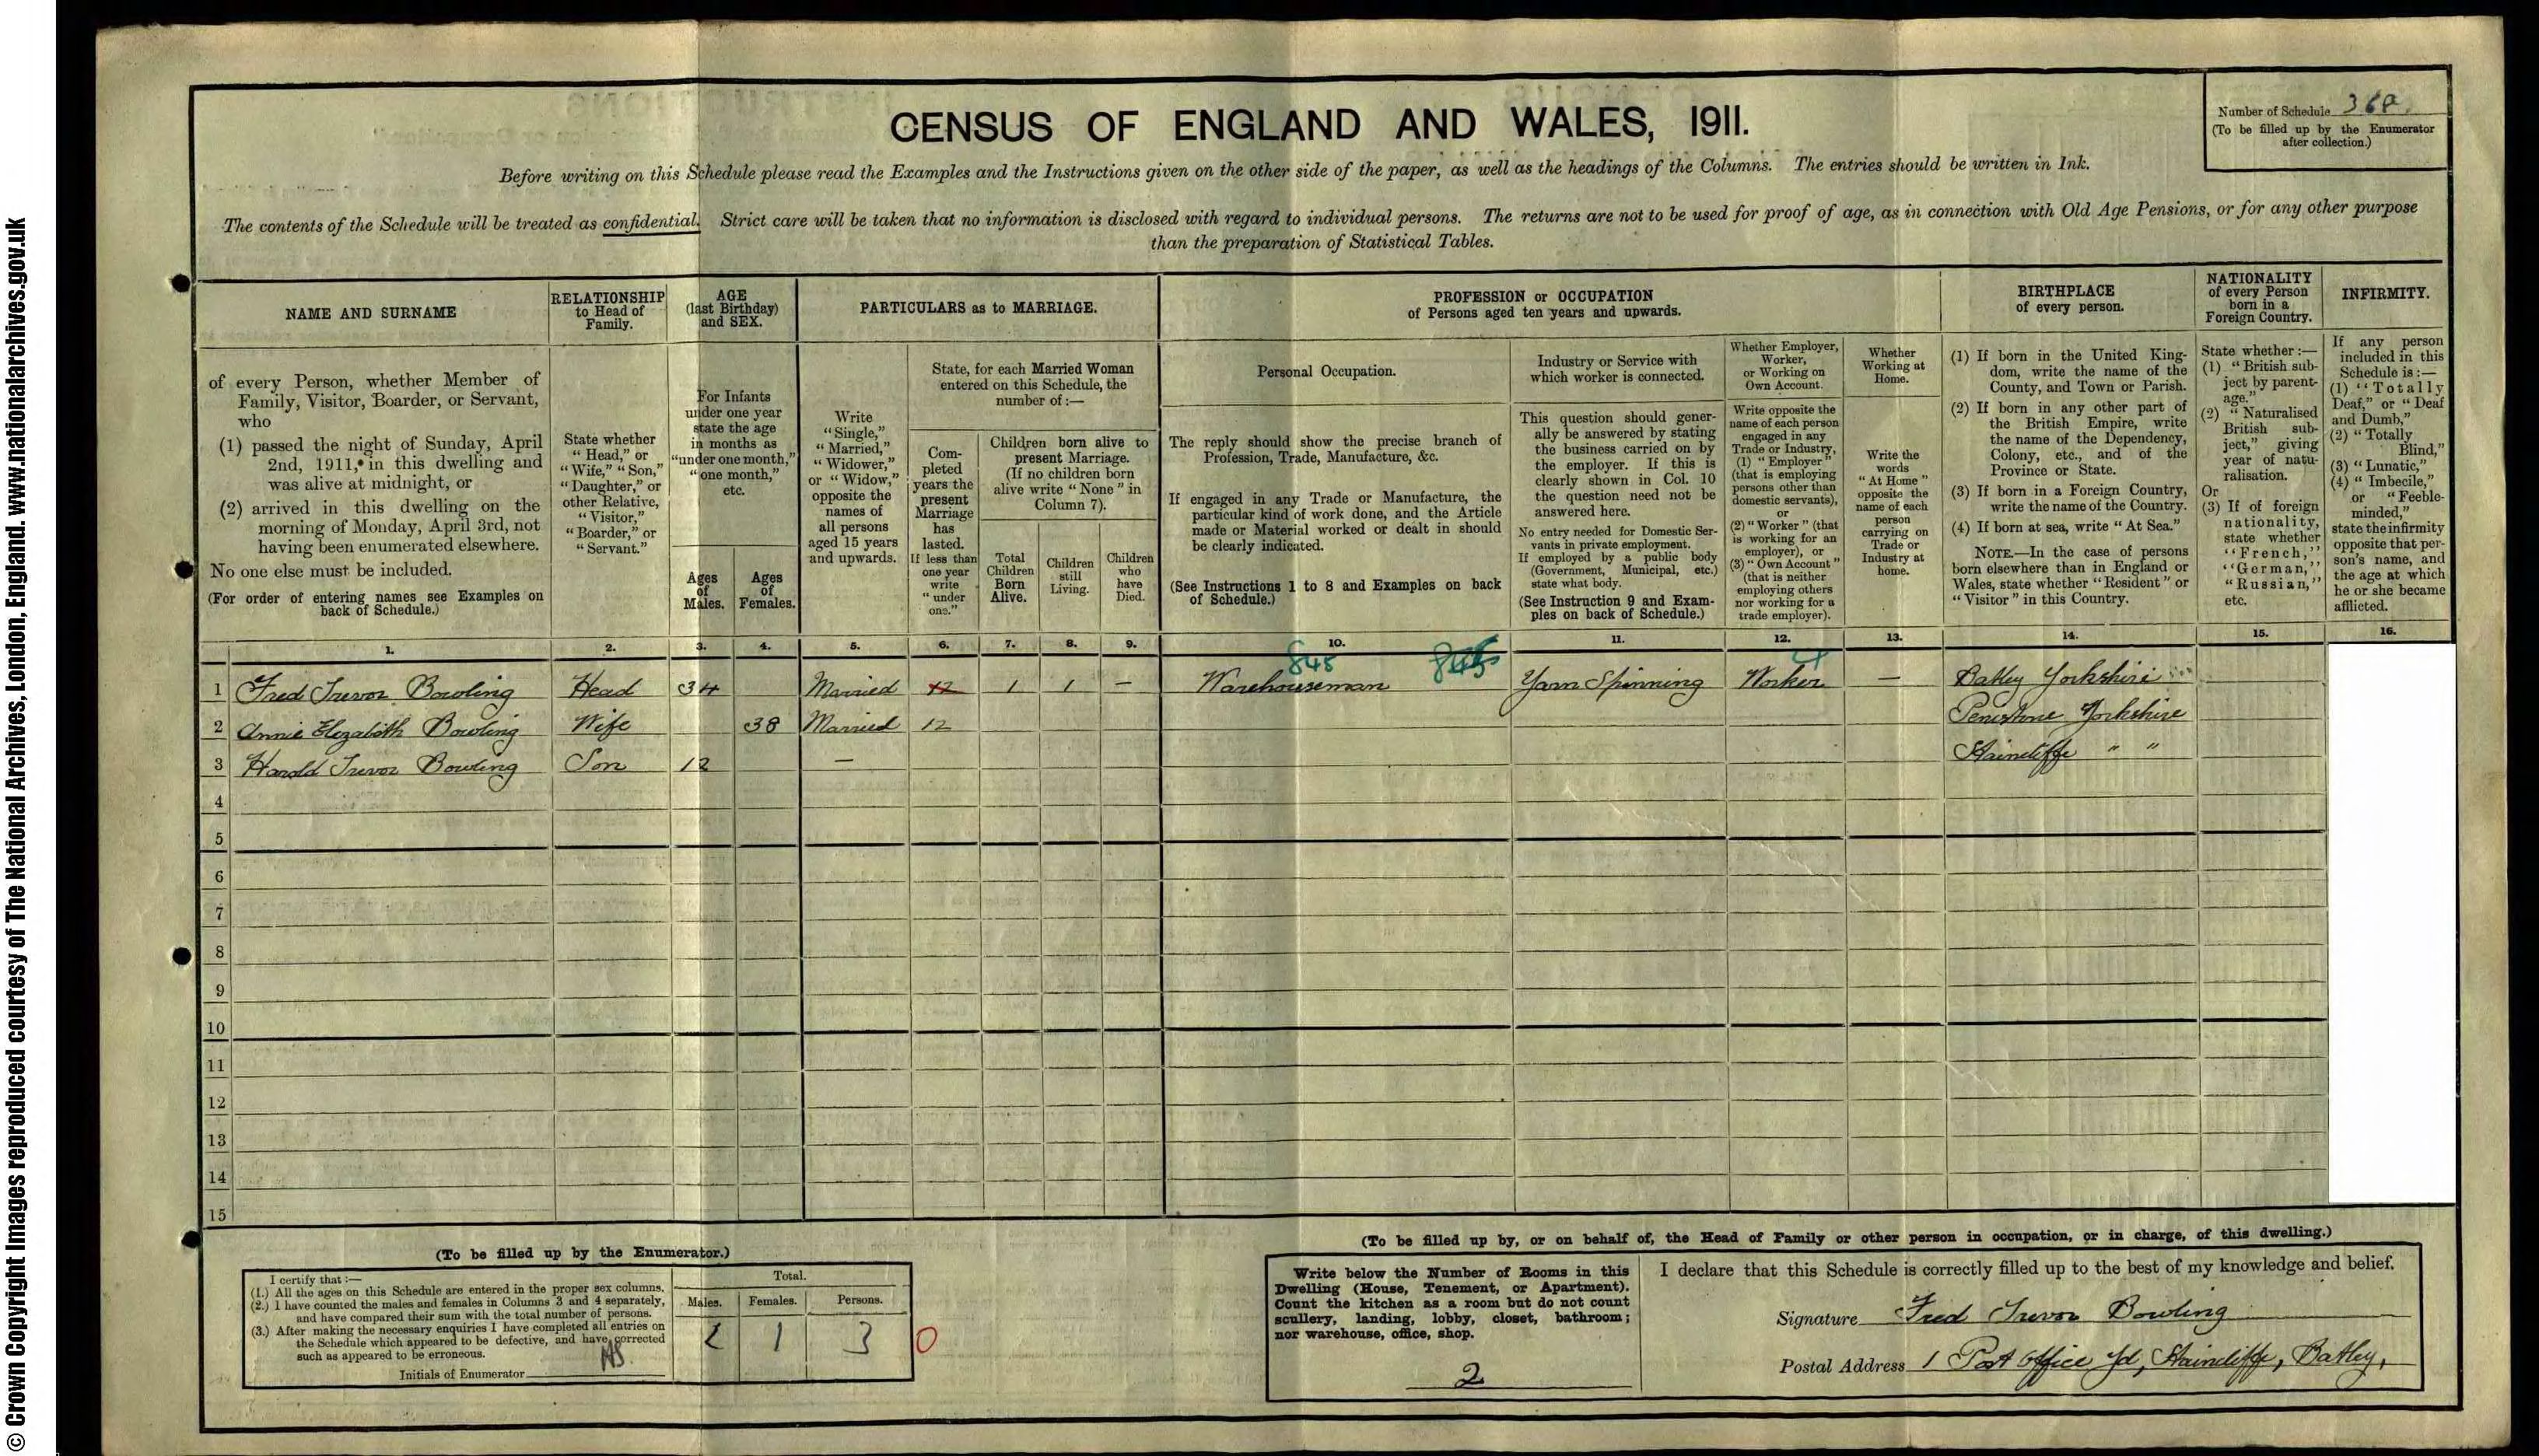 © Crown Copyright Images reproduced courtesy of The National Archives, London, England. www.nationalarchives.gov.uk
CENSUS OF ENGLAND AND WALES, 1911.
Number of Schedule
(To be filled up by the Enumerator
after collection.)
Before writing on this Schedule please read the Examples and the Instructions given on the other side of the paper, as well as the headings of the Columns. The entries should be written in Ink.
The contents of the Schedule will be treated as confidential. Strict care will be taken that no information is disclosed with regard to individual persons. The returns are not to be used for proof of age, as in connection with Old Age Pensions, or for any other purpose
than the preparation of Statistical Tables.
NAME AND SURNAME
of every Person, whether Member of
Family, Visitor, Boarder, or Servant,
who
(1) passed the night of Sunday, April
2nd, 1911, in this dwelling and
was alive at midnight, or
(2) arrived in this dwelling on the
morning of Monday, April 3rd, not
having been enumerated elsewhere.
No one else must be included.
(For order of entering names see Examples on
back of Schedule.)
RELATIONSHIP
to Head of
Family.
State whether
"Head," or
"Wife," "Son,"
"Daughter," or
other Relative,
"Visitor,"
"Boarder," or
"Servant."
AGE
(last Birthday)
and SEX.
For Infants
under one year
state the age
in months as
"under one month,"
"one month,"
etc.
Ages
of
Males.
Ages
of
Females.
PARTICULARS as to MARRIAGE.
Write
"Single,"
"Married,"
"Widower,"
or "Widow,"
opposite the
names of
all persons
aged 15 years
and upwards.
State, for each Married Woman
entered on this Schedule, the
number of :—
Com-
pleted
years the
present
Marriage
has
lasted.
If less than
one year
write
"under
one."
Children born alive to
present Marriage.
(If no children born
alive write "None" in
Column 7).
Total
Children
Born
Alive.
Children
still
Living.
Children
who
have
Died.
PROFESSION or OCCUPATION
of Persons aged ten years and upwards.
Personal Occupation.
The reply should show the precise branch of
Profession, Trade, Manufacture, &c.
If engaged in any Trade or Manufacture, the
particular kind of work done, and the Article
made or Material worked or dealt in should
be clearly indicated.
(See Instructions 1 to 8 and Examples on back
of Schedule.)
Industry or Service with
which worker is connected.
This question should gener-
ally be answered by stating
the business carried on by
the employer. If this is
clearly shown in Col. 10
the question need not be
answered here.
No entry needed for Domestic Ser-
vants in private employment.
If employed by a public body
(Government, Municipal, etc.)
state what body.
(See Instruction 9 and Exam-
ples on back of Schedule.)
Whether Employer,
Worker,
or Working on
Own Account.
Write opposite the
name of each person
engaged in any
Trade or Industry,
(1) "Employer"
(that is employing
persons other than
domestic servants),
or
(2) "Worker" (that
is working for an
employer), or
(3) "Own Account"
(that is neither
employing others
nor working for a
trade employer).
Whether
Working at
Home.
Write the
words
"At Home"
opposite the
name of each
person
carrying on
Trade or
Industry at
home.
BIRTHPLACE
of every person.
(1) If born in the United King-
dom, write the name of the
County, and Town or Parish.
(2) If born in any other part of
the British Empire, write
the name of the Dependency,
Colony, etc., and of the
Province or State.
(3) If born in a Foreign Country,
write the name of the Country.
(4) If born at sea, write "At Sea."
NOTE.—In the case of persons
born elsewhere than in England or
Wales, state whether "Resident" or
"Visitor" in this Country.
NATIONALITY
of every Person
born in a
Foreign Country.
State whether :—
(1) "British sub-
ject by parent-
age."
(2) "Naturalised
British sub-
ject," giving
year of natu-
ralisation.
Or
(3) If of foreign
nationality,
state whether
"French,"
"German,"
"Russian,"
etc.
INFIRMITY.
If any person
included in this
Schedule is :—
(1) "Totally
Deaf," or "Deaf
and Dumb,"
(2) "Totally
Blind,"
(3) "Lunatic,"
(4) "Imbecile,"
or "Feeble-
minded,"
state the infirmity
opposite that per-
son's name, and
the age at which
he or she became
afflicted.
1. 2. 3. 4. 5. 6. 7. 8. 9. 10. 11. 12. 13. 14. 15. 16.
845 845
1 Fred Trevor Bowling Head 34 Married 12 1 1 — Warehouseman Yarn Spinning Worker — Batley Yorkshire
2 Annie Elizabeth Bowling Wife 38 Married 12 Penistone Yorkshire
3 Harold Trevor Bowling Son 12 — Staincliffe " "
4
5
6
7
8
9
10
11
12
13
14
15
(To be filled up by the Enumerator.)
I certify that :—
(1.) All the ages on this Schedule are entered in the proper sex columns.
(2.) I have counted the males and females in Columns 3 and 4 separately,
and have compared their sum with the total number of persons.
(3.) After making the necessary enquiries I have completed all entries on
the Schedule which appeared to be defective, and have corrected
such as appeared to be erroneous.
Initials of Enumerator
Total.
Males. Females. Persons.
2 1 3 0
(To be filled up by, or on behalf of, the Head of Family or other person in occupation, or in charge, of this dwelling.)
Write below the Number of Rooms in this
Dwelling (House, Tenement, or Apartment).
Count the kitchen as a room but do not count
scullery, landing, lobby, closet, bathroom;
nor warehouse, office, shop.
2
I declare that this Schedule is correctly filled up to the best of my knowledge and belief.
Signature Fred Trevor Bowling
Postal Address 1 Post Office Yd, Staincliffe, Batley,